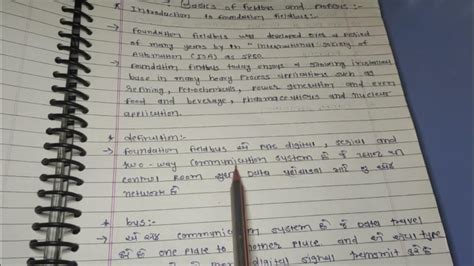 Basics of fieldbus and Profibus:-
* Introduction to foundation fieldbus:-
→ foundation fieldbus was developed over a period
of many years by the "International society of
Automation (ISA) as SP50.
→ foundation fieldbus today enjoys a growing installed
base in many heavy Process applications such as
refining, Petrochemicals, power generation and even
food and beverage, pharmaceuticals and nuclear
application.
* definition:-
→ foundation fieldbus એ digital, serial and
two-way communication system છે જે
control room data
network છે
* bus:-
→ એ એક communication system છે જે Data travel
કરે છે one place to another place. અને type
digital signal transmit કરે છે